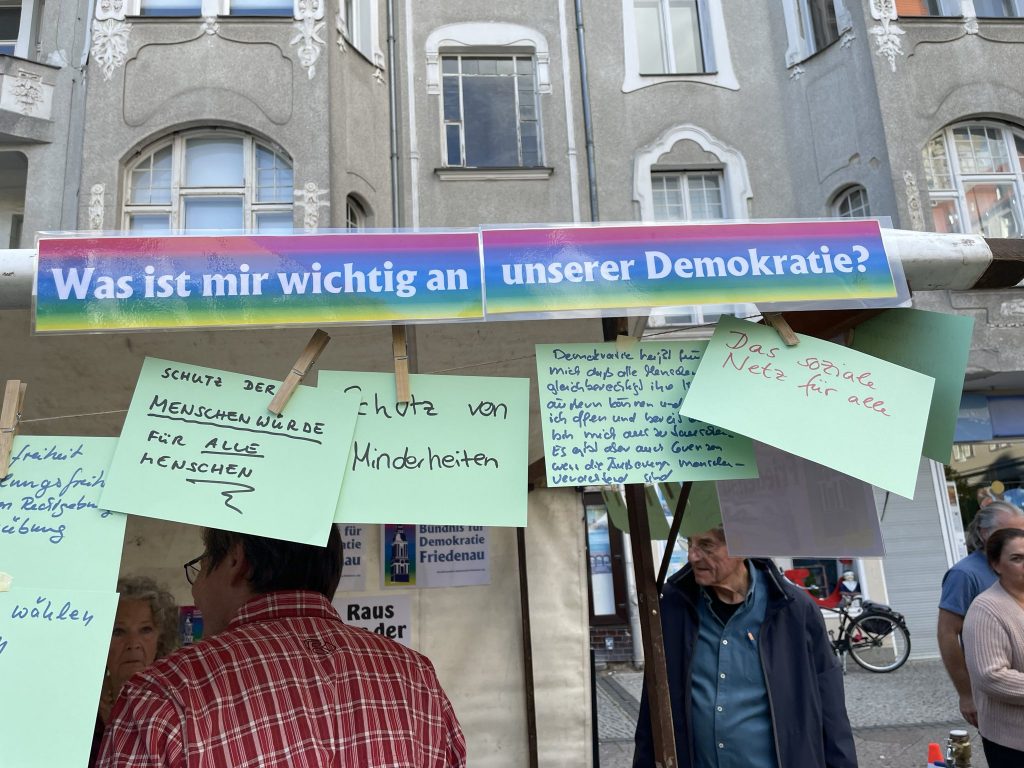 Was ist mir wichtig an unserer Demokratie?
SCHUTZ DER
MENSCHENWÜRDE
FÜR ALLE
MENSCHEN
Schutz von
Minderheiten
Demokratie heißt für
mich daß alle Menschen
gleichberechtigt ihre
äußern können und
ich offen und bereit
bin mich auszutauschen.
Es gibt aber auch Grenzen
wenn die Äußerungen menschen-
verachtend sind
Das soziale
Netz für alle
freiheit
übung
wählen
Bündnis für
Demokratie
Friedenau
Raus
der